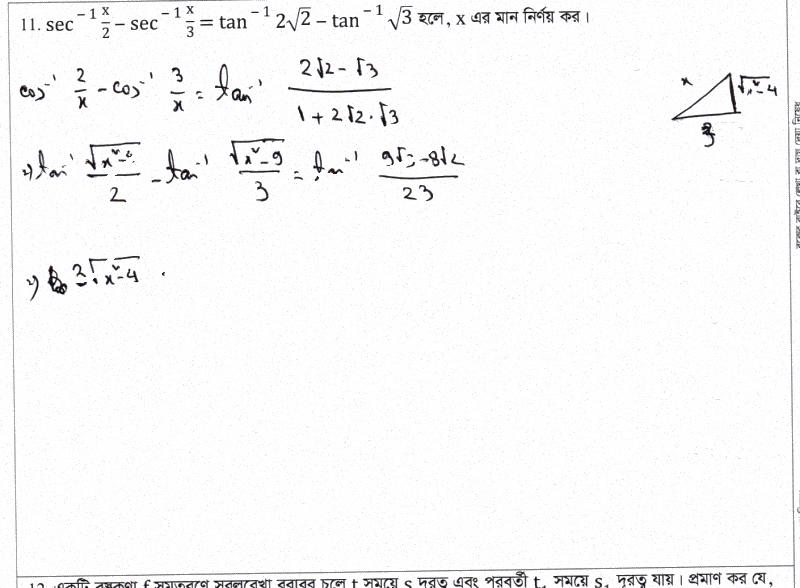 11. sec⁻¹ x/2 − sec⁻¹ x/3 = tan⁻¹ 2√2 − tan⁻¹ √3 হলে, x এর মান নির্ণয় কর।
cos⁻¹ 2/x − cos⁻¹ 3/x = tan⁻¹ (2√2 − √3)/(1 + 2√2·√3)
x
√x²−4
⇒ tan⁻¹ √x²−4/2 − tan⁻¹ √x²−9/3 = tan⁻¹ (9√3 − 8√2)/23
⇒ 3√x²−4
একটি বস্তুকণা f সমত্বরণে সরলরেখা বরাবর চলে t সময়ে s দূরত্ব এবং পরবর্তী t₁ সময়ে s₁ দূরত্ব যায়। প্রমাণ কর যে,